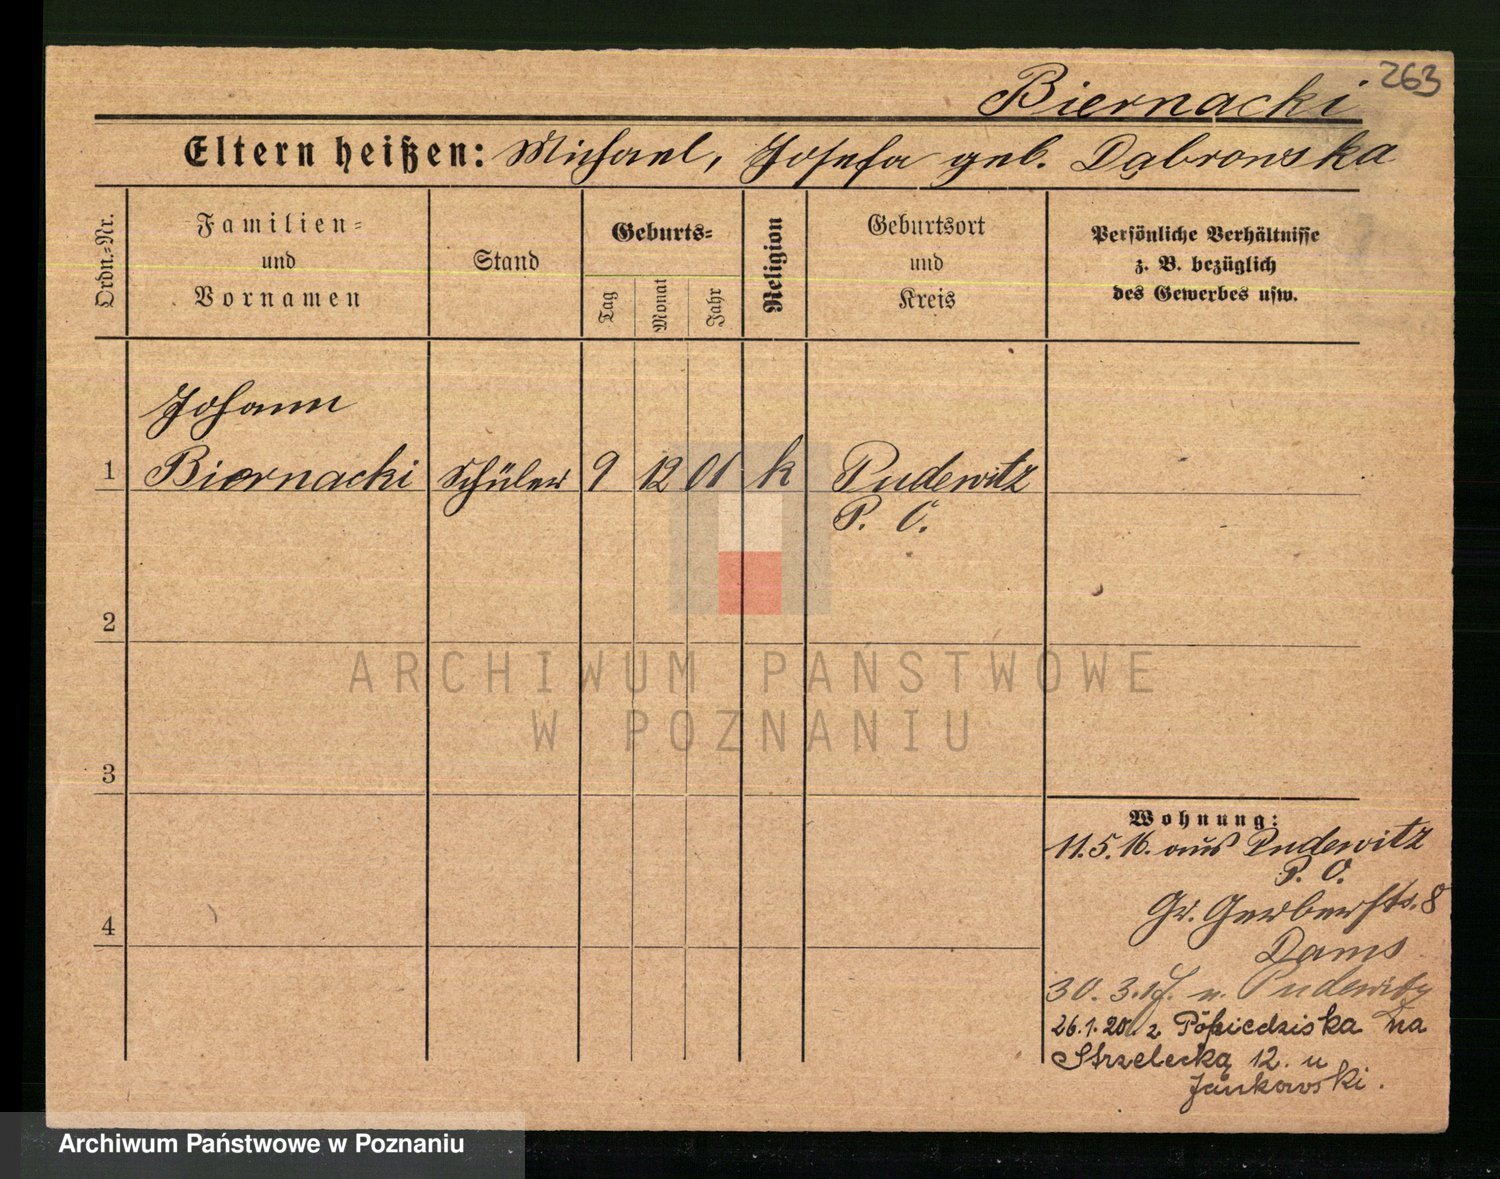 263
Biernacki
Eltern heißen: Michael, Josefa geb. Dąbrowska
Ordn.-Nr.
Familien-
und
Vornamen
Stand
Geburts-
Tag
Monat
Jahr
Religion
Geburtsort
und
Kreis
Persönliche Verhältnisse
z. B. bezüglich
des Gewerbes usw.
Johann
1 Biernacki Schüler 9 12 01 k Pudewitz
P. O.
2
3
4
Wohnung:
11.5.16. aus Pudewitz
P. O.
Gr. Gerberstr. 8
Dams
30. 3. 17. n. Pudewitz
26.1.20. z Pobiedziska na
Strzelecką 12. u
Jankowski.
ARCHIWUM PAŃSTWOWE
W POZNANIU
Archiwum Państwowe w Poznaniu